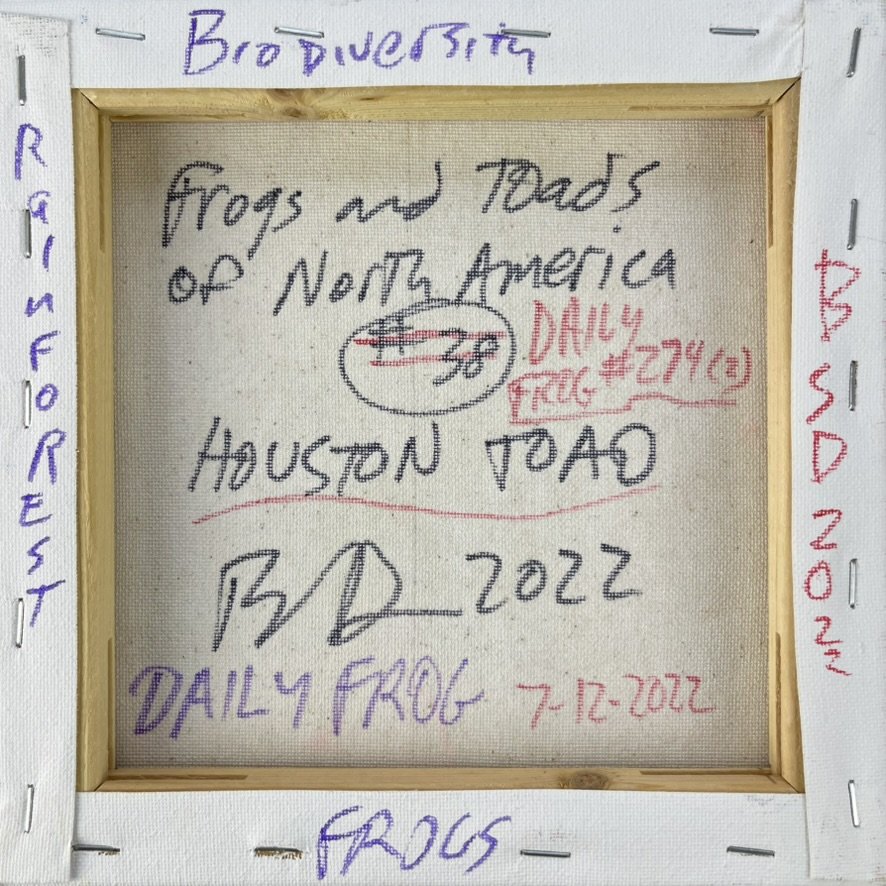 Biodiversity
RaInFOREST
Frogs and Toads
of North America
# 38
DAILY
FROG #274(2)
HOUSTON TOAD
2022
DAILY FROG 7-12-2022
BSD 2022
FROGS